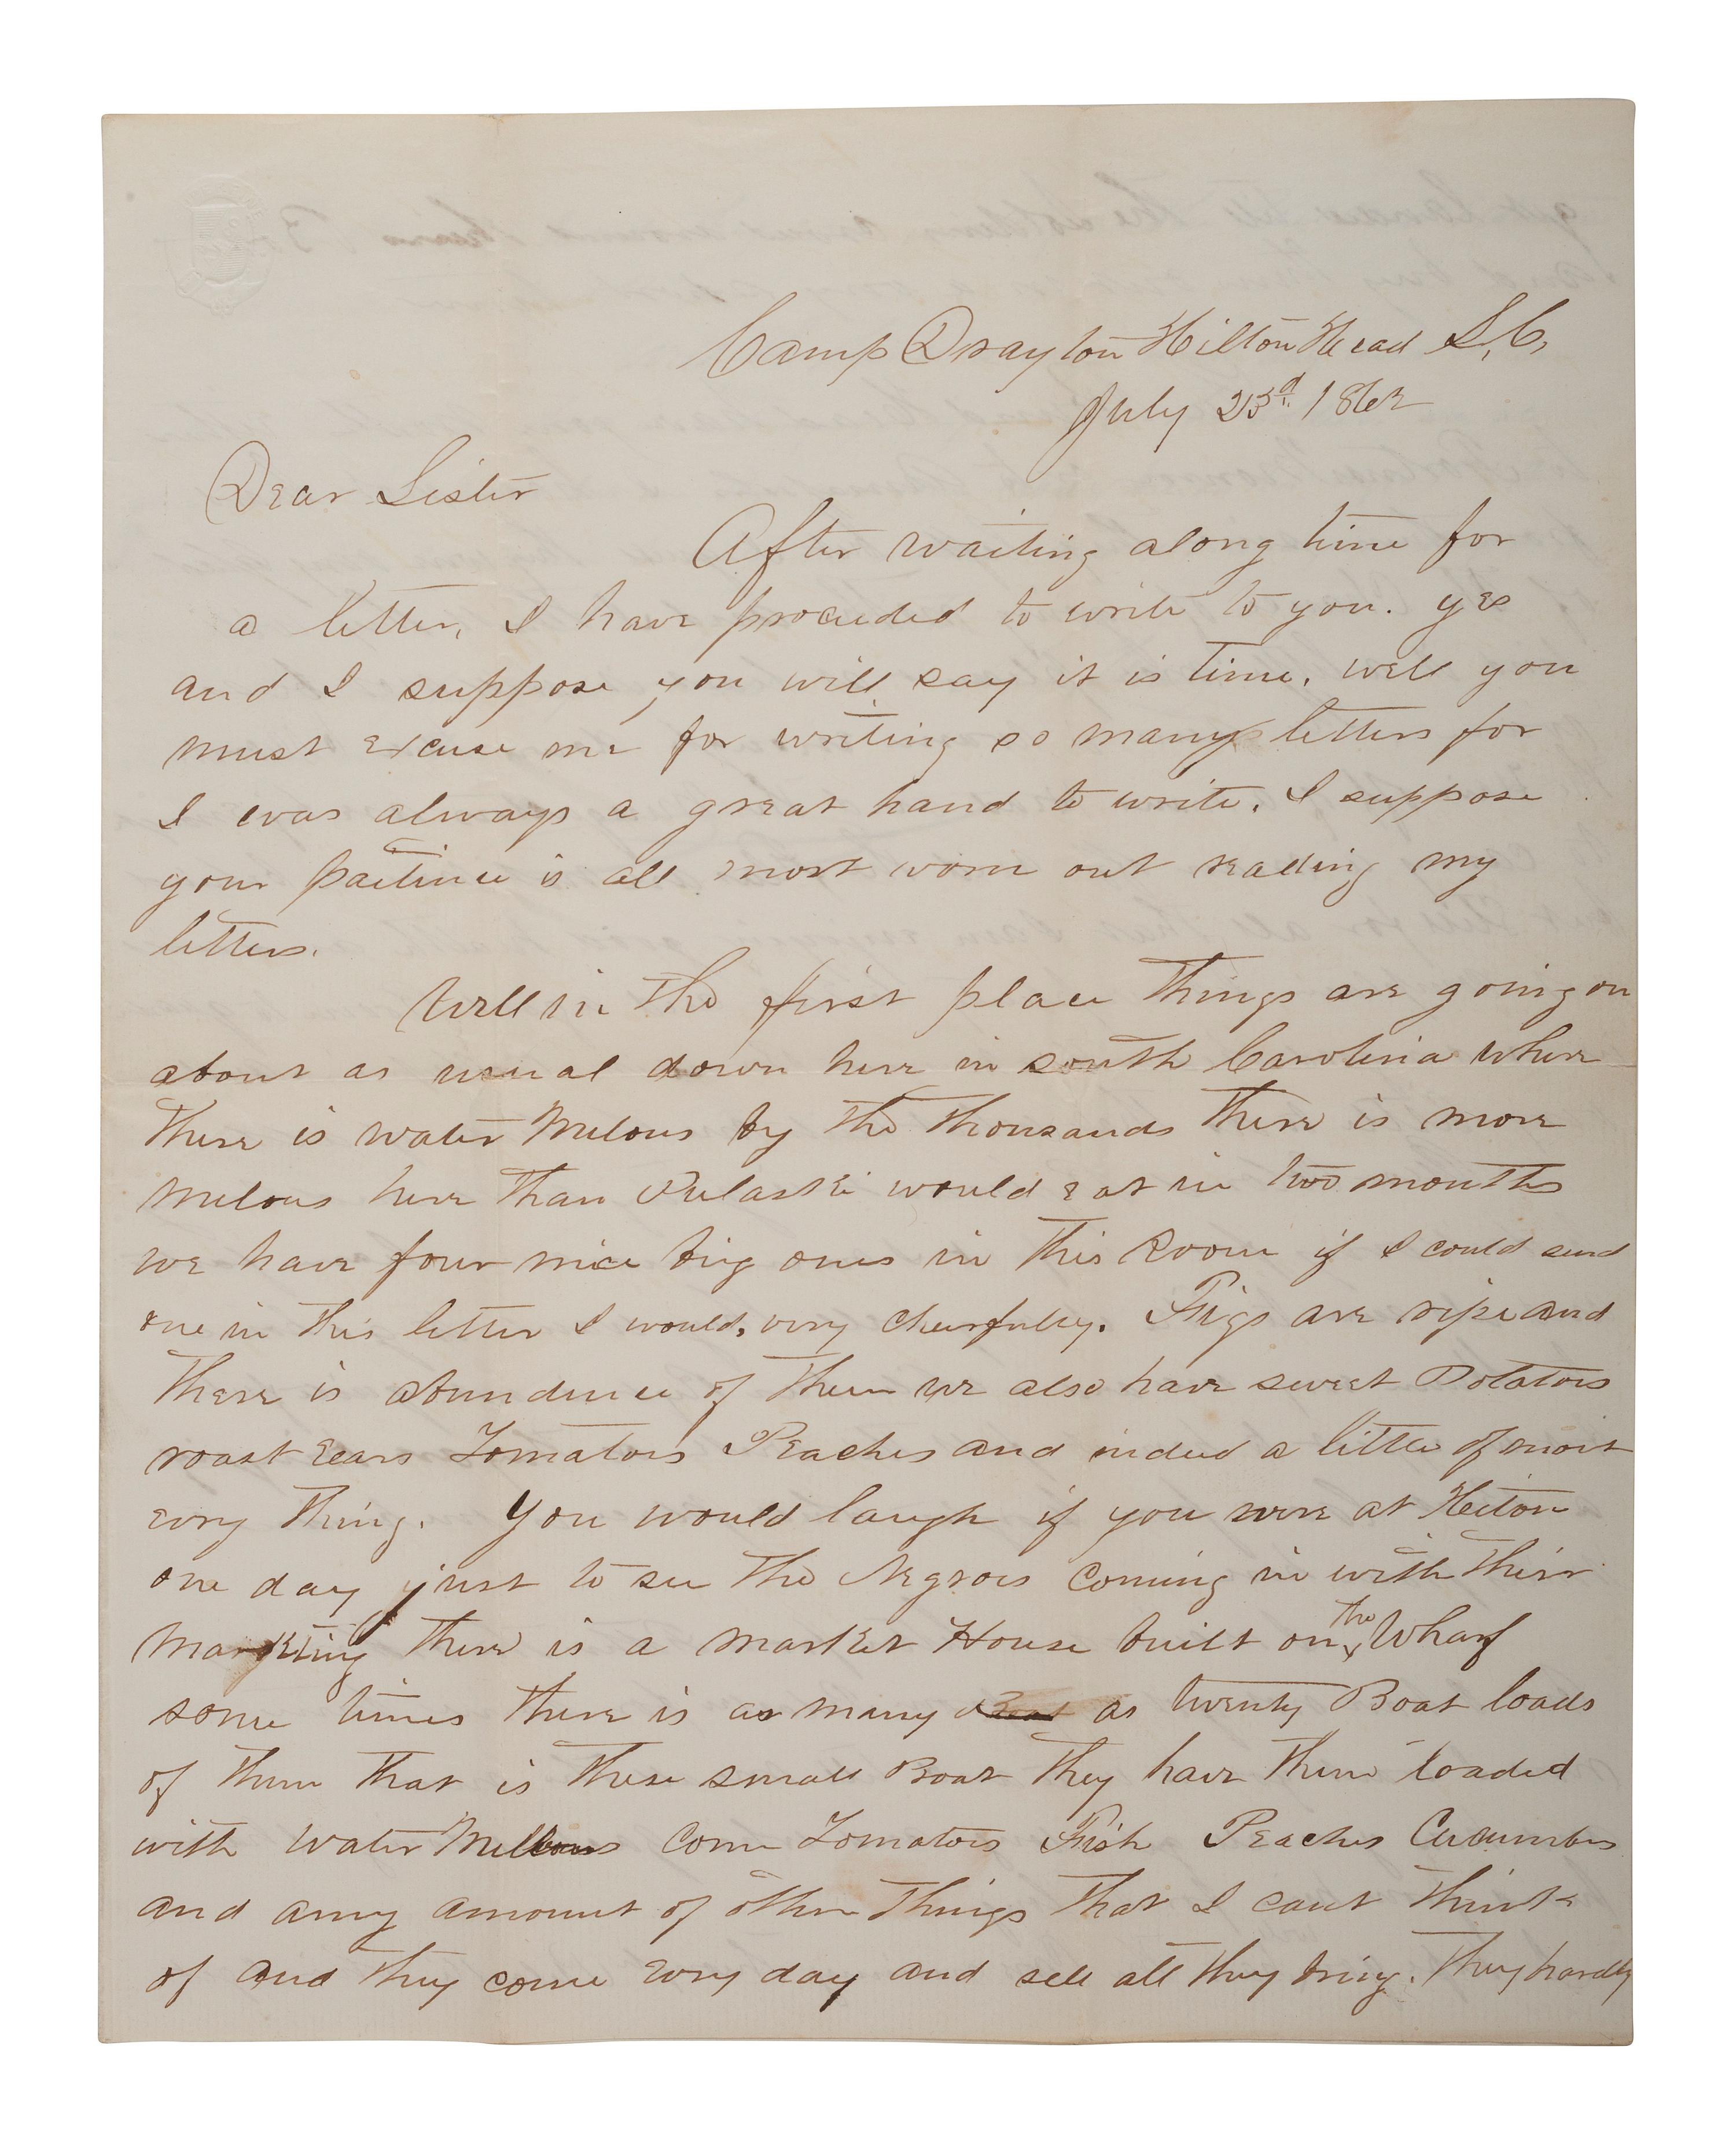 Camp Drayton Hilton Head S.C.
July 23d 1862
Dear Sister
After waiting along time for
a letter, I have proceeded to write to you. yes
and I suppose you will say it is time. well you
must excuse me for writing so many letters for
I was always a great hand to write. I suppose
your paitince is all most worn out reading my
letters.
Well in the first place Things are going on
about as usual down here in south Carolina where
There is water Melons by the thousands There is more
Melons here Than Pulaski would eat in two months
we have four nice big ones in This Room if I could send
one in this letter I would, very cheerfully. Figs are ripe and
There is abundence of Them we also have sweet Potatoes
roast Eears Tomatoes Peaches and indeed a little of most
every Thing. You would laugh if you were at Hilton
one day just to see The Negroes coming in with Their
Marketing There is a market House built on the Wharf
some times There is as many Boat as twenty Boat loads
of Them That is These small Boat They have Them loaded
with water Mellons Corn Tomatoes Fish Peaches Cucumbers
and anny amount of other Things That I cant Think
of and They come every day and sell all they bring. They hardly